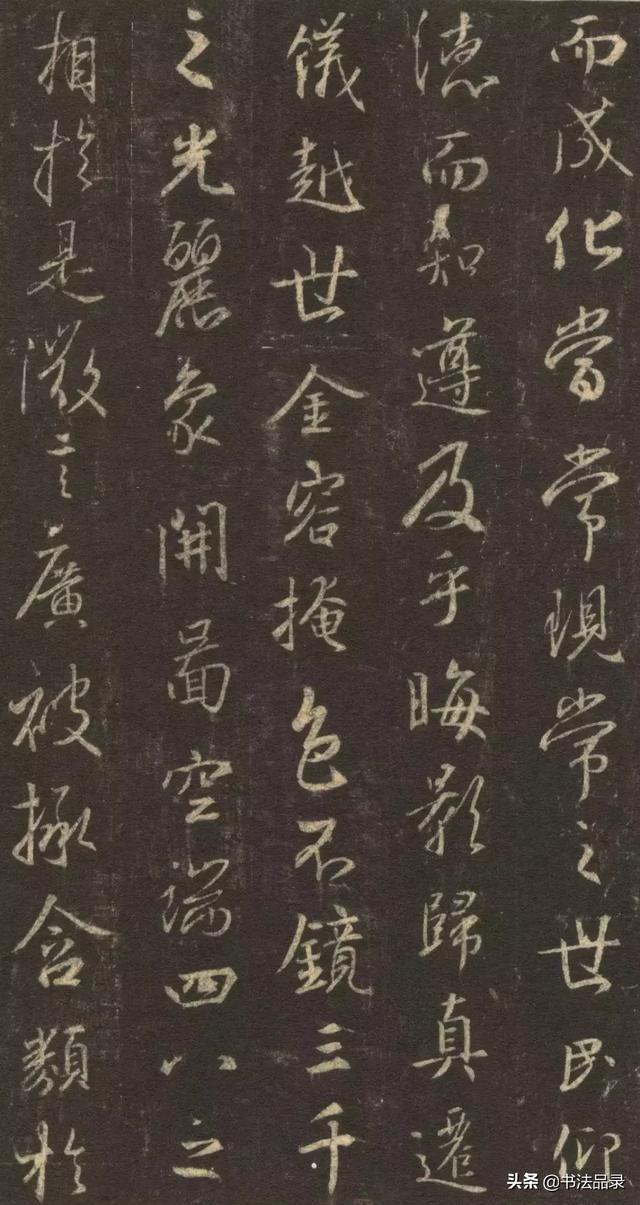 而成化當常現常之世民仰
德而知遵及乎晦影歸真遷
儀越世金容掩色不鏡三千
之光麗象開圖空端四八之
相於是微言廣被拯含類於
头条 @书法品录